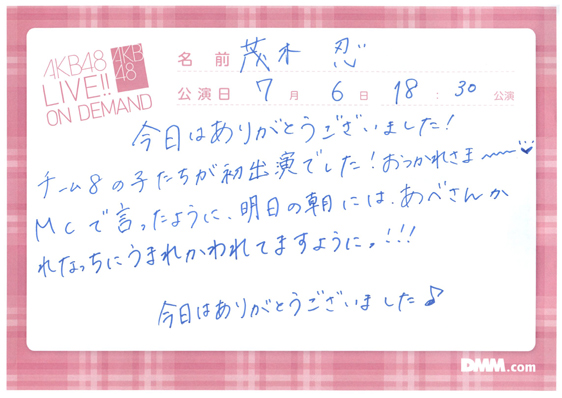 AKB48
LIVE!!
ON DEMAND
AKB
48
名前 茂木 忍
公演日 7月 6日 18:30 公演
今日はありがとうございました!
チーム8の子たちが初出演でした!おつかれさま〜
MCで言ったように、明日の朝には、あべさんか
れなっちにうまれかわれてますように。!!!
今日はありがとうございました♪
DMM.com